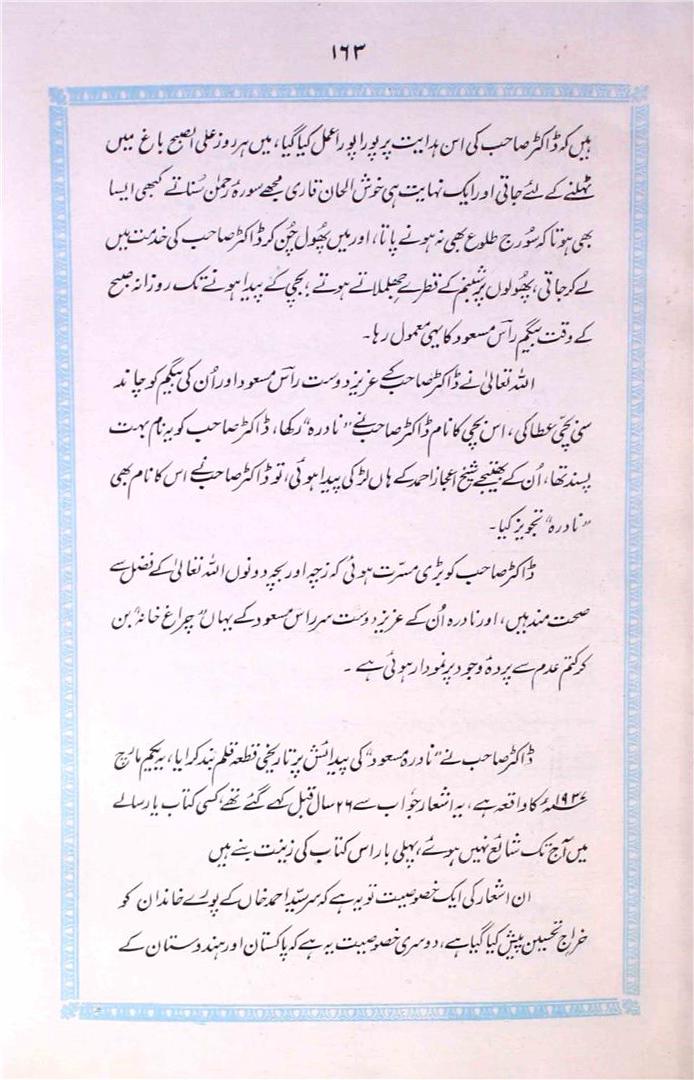 ۱۶۳
ہیں کہ ڈاکٹر صاحب کی اس ہدایت پر پورا پورا عمل کیا گیا، میں ہر روز علی الصبح باغ میں
ٹہلنے کے لئے جاتی اور ایک نہایت ہی خوش الحان قاری مجھے سورۂ رحمٰن سُناتے کبھی ایسا
بھی ہوتا کہ سُورج طلوع بھی نہ ہونے پاتا، اور میں پھُول چُن کر ڈاکٹر صاحب کی خدمت میں
لے کر جاتی، پھُولوں پر شبنم کے قطرے جھلملاتے ہوتے؛ بچی کے پیدا ہونے تک روزانہ صبح
کے وقت بیگم راس مسعود کا یہی معمول رہا۔
اللہ تعالیٰ نے ڈاکٹر صاحب کے عزیز دوست راس مسعود اور اُن کی بیگم کو چاند
سی بچّی عطا کی، اس بچی کا نام ڈاکٹر صاحب نے "نادرہ" رکھا، ڈاکٹر صاحب کو یہ نام بہت
پسند تھا، اُن کے بھتیجے شیخ اعجاز احمد کے ہاں لڑکی پیدا ہوئی، تو ڈاکٹر صاحب نے اس کا نام بھی
"نادرہ" تجویز کیا۔
ڈاکٹر صاحب کو بڑی مسرت ہوئی کہ زچہ اور بچہ دونوں اللہ تعالیٰ کے فضل سے
صحت مند ہیں، اور نادرہ اُن کے عزیز دوست سر راس مسعود کے یہاں "چراغ خانہ" بن
کر کتم عدم سے پردۂ وجود پر نمودار ہوئی ہے۔
ڈاکٹر صاحب نے "نادرۂ مسعود" کی پیدائش پر تاریخی قطعہ قلم بند کرایا، یہ یکم مارچ
۱۹۳۷ء کا واقعہ ہے، یہ اشعار جو اب سے ۲۶ سال قبل کہے گئے تھے، کسی کتاب یا رسالے
میں آج تک شائع نہیں ہوئے، پہلی بار اس کتاب کی زینت بنے ہیں
ان اشعار کی ایک خصوصیت تو یہ ہے کہ سر سیّد احمد خاں کے پورے خاندان کو
خراجِ تحسین پیش کیا گیا ہے، دوسری خصوصیت یہ ہے کہ پاکستان اور ہندوستان کے